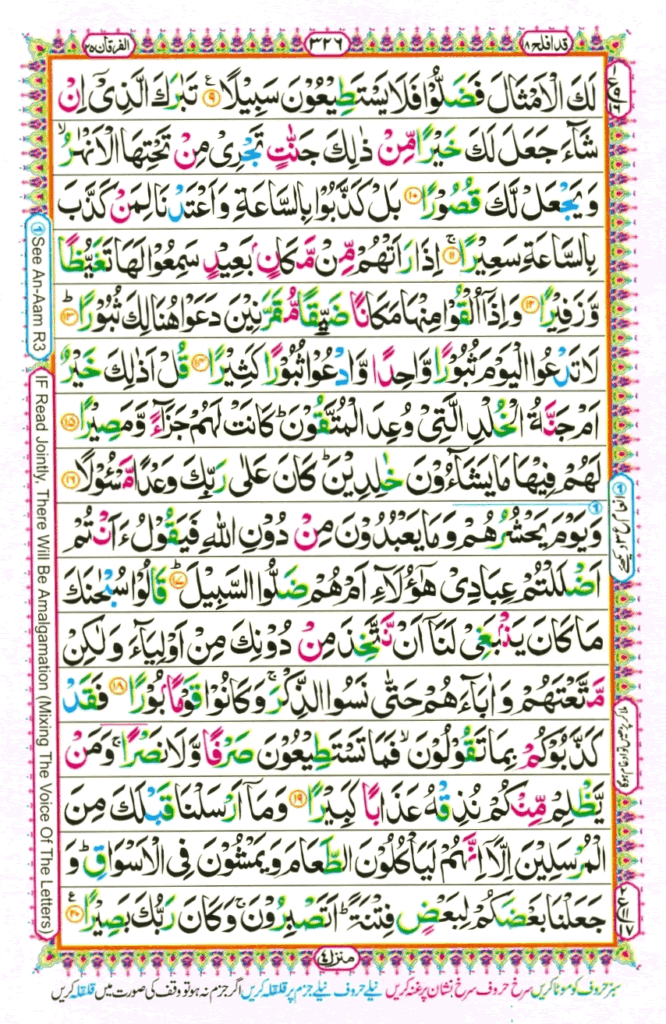 قد افلح ۱۸
۳۲۶
الفرقان ۲۵
لَكَ الْاَمْثَالَ فَضَلُّوْا فَلَا يَسْتَطِيْعُوْنَ سَبِيْلًا ۟ۧ۹ تَبٰرَكَ الَّذِيْۤ اِنْ
شَآءَ جَعَلَ لَكَ خَيْرًا مِّنْ ذٰلِكَ جَنّٰتٍ تَجْرِيْ مِنْ تَحْتِهَا الْاَنْهٰرُ ۙ
وَيَجْعَلْ لَّكَ قُصُوْرًا ۱۰ بَلْ كَذَّبُوْا بِالسَّاعَةِ وَاَعْتَدْنَا لِمَنْ كَذَّبَ
بِالسَّاعَةِ سَعِيْرًا ۚ۱۱ اِذَا رَاَتْهُمْ مِّنْ مَّكَانٍۭ بَعِيْدٍ سَمِعُوْا لَهَا تَغَيُّظًا
وَّزَفِيْرًا ۱۲ وَاِذَاۤ اُلْقُوْا مِنْهَا مَكَانًا ضَيِّقًا مُّقَرَّنِيْنَ دَعَوْا هُنَالِكَ ثُبُوْرًا ؕ۱۳
لَا تَدْعُوا الْيَوْمَ ثُبُوْرًا وَّاحِدًا وَّادْعُوْا ثُبُوْرًا كَثِيْرًا ۱۴ قُلْ اَذٰلِكَ خَيْرٌ
اَمْ جَنَّةُ الْخُلْدِ الَّتِيْ وُعِدَ الْمُتَّقُوْنَ ؕ كَانَتْ لَهُمْ جَزَآءً وَّمَصِيْرًا ۱۵
لَهُمْ فِيْهَا مَا يَشَآءُوْنَ خٰلِدِيْنَ ؕ كَانَ عَلٰى رَبِّكَ وَعْدًا مَّسْـُٔوْلًا ۱۶
وَيَوْمَ يَحْشُرُهُمْ وَمَا يَعْبُدُوْنَ مِنْ دُوْنِ اللّٰهِ فَيَقُوْلُ ءَاَنْتُمْ
اَضْلَلْتُمْ عِبَادِيْ هٰۤؤُلَآءِ اَمْ هُمْ ضَلُّوا السَّبِيْلَ ؕ۱۷ قَالُوْا سُبْحٰنَكَ
مَا كَانَ يَنْۢبَغِيْ لَنَاۤ اَنْ نَّتَّخِذَ مِنْ دُوْنِكَ مِنْ اَوْلِيَآءَ وَلٰكِنْ
مَّتَّعْتَهُمْ وَاٰبَآءَهُمْ حَتّٰى نَسُوا الذِّكْرَ ۚ وَكَانُوْا قَوْمًۢا بُوْرًا ۱۸ فَقَدْ
كَذَّبُوْكُمْ بِمَا تَقُوْلُوْنَ ۙ فَمَا تَسْتَطِيْعُوْنَ صَرْفًا وَّلَا نَصْرًا ۚ وَمَنْ
يَّظْلِمْ مِّنْكُمْ نُذِقْهُ عَذَابًا كَبِيْرًا ۱۹ وَمَاۤ اَرْسَلْنَا قَبْلَكَ مِنَ
الْمُرْسَلِيْنَ اِلَّاۤ اِنَّهُمْ لَيَاْكُلُوْنَ الطَّعَامَ وَيَمْشُوْنَ فِي الْاَسْوَاقِ ؕ وَ
جَعَلْنَا بَعْضَكُمْ لِبَعْضٍ فِتْنَةً ؕ اَتَصْبِرُوْنَ ۚ وَكَانَ رَبُّكَ بَصِيْرًا ۧ۲۰
منزل ۴
سبز حروف کو موٹا کریں سرخ حروف سرخ نشان پر غنہ کریں نیلے حروف نیلے جزم پر قلقلہ کریں اگر جزم نہ ہو تو وقف کی صورت میں قلقلہ کریں
See An-Aam R3
IF Read Jointly, There Will Be Amalgamation (Mixing The Voice Of The Letters)